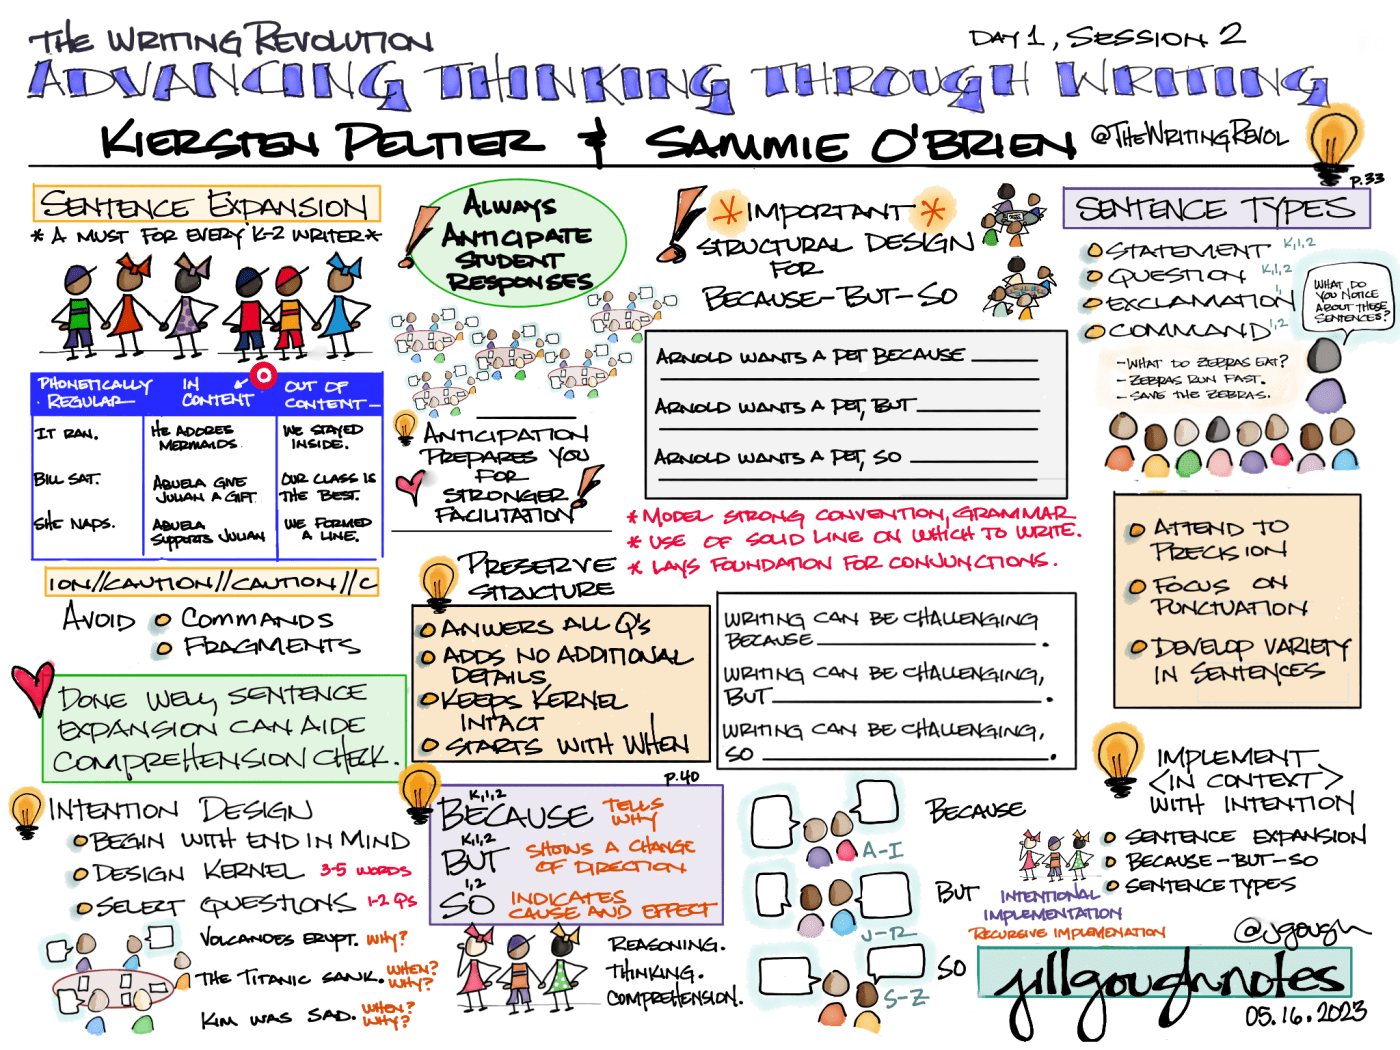 THE WRITING REVOLUTION
DAY 1, SESSION 2
ADVANCING THINKING THROUGH WRITING
KIERSTEN PELTIER & SAMMIE O'BRIEN @THEWRITINGREVOL
SENTENCE EXPANSION
* A MUST FOR EVERY K-2 WRITER *
PHONETICALLY REGULAR
IN CONTENT
OUT OF CONTENT
IT RAN.
HE ADORES MERMAIDS.
WE STAYED INSIDE.
BILL SAT.
ABUELA GIVE JULIAN A GIFT.
OUR CLASS IS THE BEST.
SHE NAPS.
ABUELA SUPPORTS JULIAN
WE FORMED A LINE.
ION//CAUTION//CAUTION//C
AVOID
COMMANDS
FRAGMENTS
DONE WELL, SENTENCE
EXPANSION CAN AIDE
COMPREHENSION CHECK.
INTENTION DESIGN
BEGIN WITH END IN MIND
DESIGN KERNEL 3-5 WORDS
SELECT QUESTIONS 1-2 QS
VOLCANOES ERUPT. WHY?
THE TITANIC SANK. WHEN? WHY?
KIM WAS SAD. WHEN? WHY?
ALWAYS
ANTICIPATE
STUDENT
RESPONSES
ANTICIPATION
PREPARES YOU
FOR
STRONGER
FACILITATION
PRESERVE
STRUCTURE
ANWERS ALL Q'S
ADDS NO ADDITIONAL
DETAILS
KEEPS KERNEL
INTACT
STARTS WITH WHEN
P.40
K,1,2
BECAUSE TELLS WHY
K,1,2
BUT SHOWS A CHANGE OF DIRECTION
1,2
SO INDICATES CAUSE AND EFFECT
REASONING.
THINKING.
COMPREHENSION.
* IMPORTANT *
STRUCTURAL DESIGN
FOR
BECAUSE-BUT-SO
ARNOLD WANTS A PET BECAUSE
ARNOLD WANTS A PET, BUT
ARNOLD WANTS A PET, SO
* MODEL STRONG CONVENTION, GRAMMAR
* USE OF SOLID LINE ON WHICH TO WRITE.
* LAYS FOUNDATION FOR CONJUNCTIONS.
WRITING CAN BE CHALLENGING
BECAUSE .
WRITING CAN BE CHALLENGING,
BUT .
WRITING CAN BE CHALLENGING,
SO .
BECAUSE
A-I
BUT
J-R
SO
S-Z
P.33
SENTENCE TYPES
STATEMENT K,1,2
QUESTION K,1,2
EXCLAMATION 1
COMMAND 1,2
WHAT DO
YOU NOTICE
ABOUT THESE
SENTENCES?
- WHAT DO ZEBRAS EAT?
- ZEBRAS RUN FAST.
- SAVE THE ZEBRAS.
ATTEND TO
PRECISION
FOCUS ON
PUNCTUATION
DEVELOP VARIETY
IN SENTENCES
IMPLEMENT
<IN CONTEXT>
WITH INTENTION
SENTENCE EXPANSION
BECAUSE-BUT-SO
SENTENCE TYPES
INTENTIONAL
IMPLEMENTATION
RECURSIVE IMPLEMENATION
@jgough
jillgoughnotes
05.16.2023